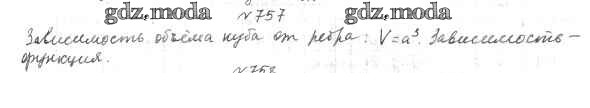 gdz.moda №757 gdz.moda
Зависимость объёма куба от ребра: V=a³. Зависимость –
функция.
№758